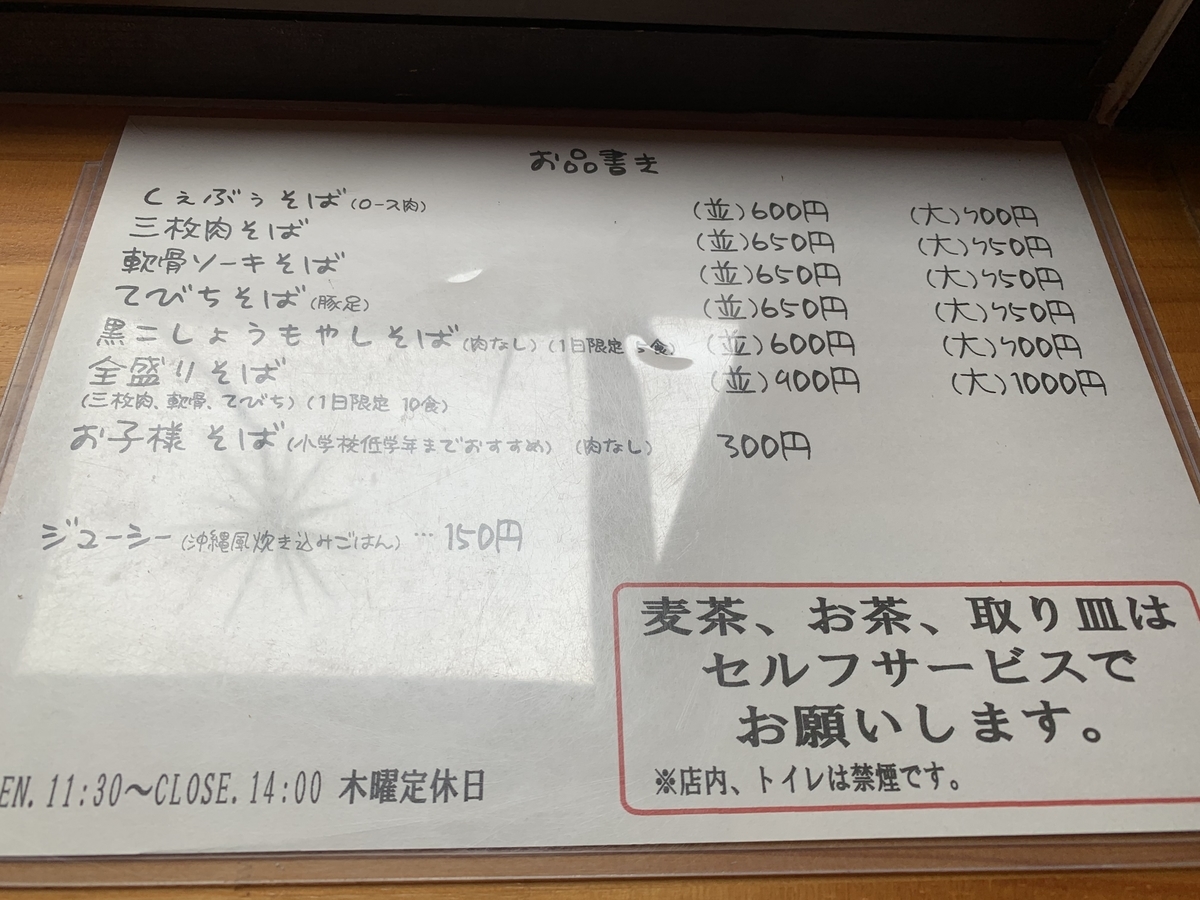 お品書き
くぇぶぅそば(ロース肉) (並)600円 (大)700円
三枚肉そば (並)650円 (大)750円
軟骨ソーキそば (並)650円 (大)750円
てびちそば(豚足) (並)650円 (大)750円
黒こしょうもやしそば(肉なし)(1日限定 5食) (並)600円 (大)700円
全盛りそば (並)900円 (大)1000円
(三枚肉、軟骨、てびち)(1日限定 10食)
お子様 そば(小学校低学年までおすすめ) (肉なし) 300円
ジューシー(沖縄風炊き込みごはん)…150円
麦茶、お茶、取り皿は
セルフサービスで
お願いします。
※店内、トイレは禁煙です。
EN. 11:30～CLOSE. 14:00 木曜定休日